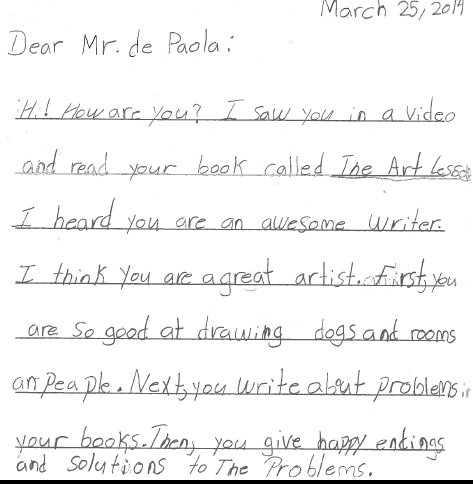 March 25, 2014
Dear Mr. de Paola:
Hi! How are you? I saw you in a video
and read your book called The Art Lesson
I heard you are an awesome writer.
I think you are a great artist. First, you
are so good at drawing dogs and rooms
an peaple. Next, you write about problems in
your books. Then, you give happy endings
and solutions to The Problems.